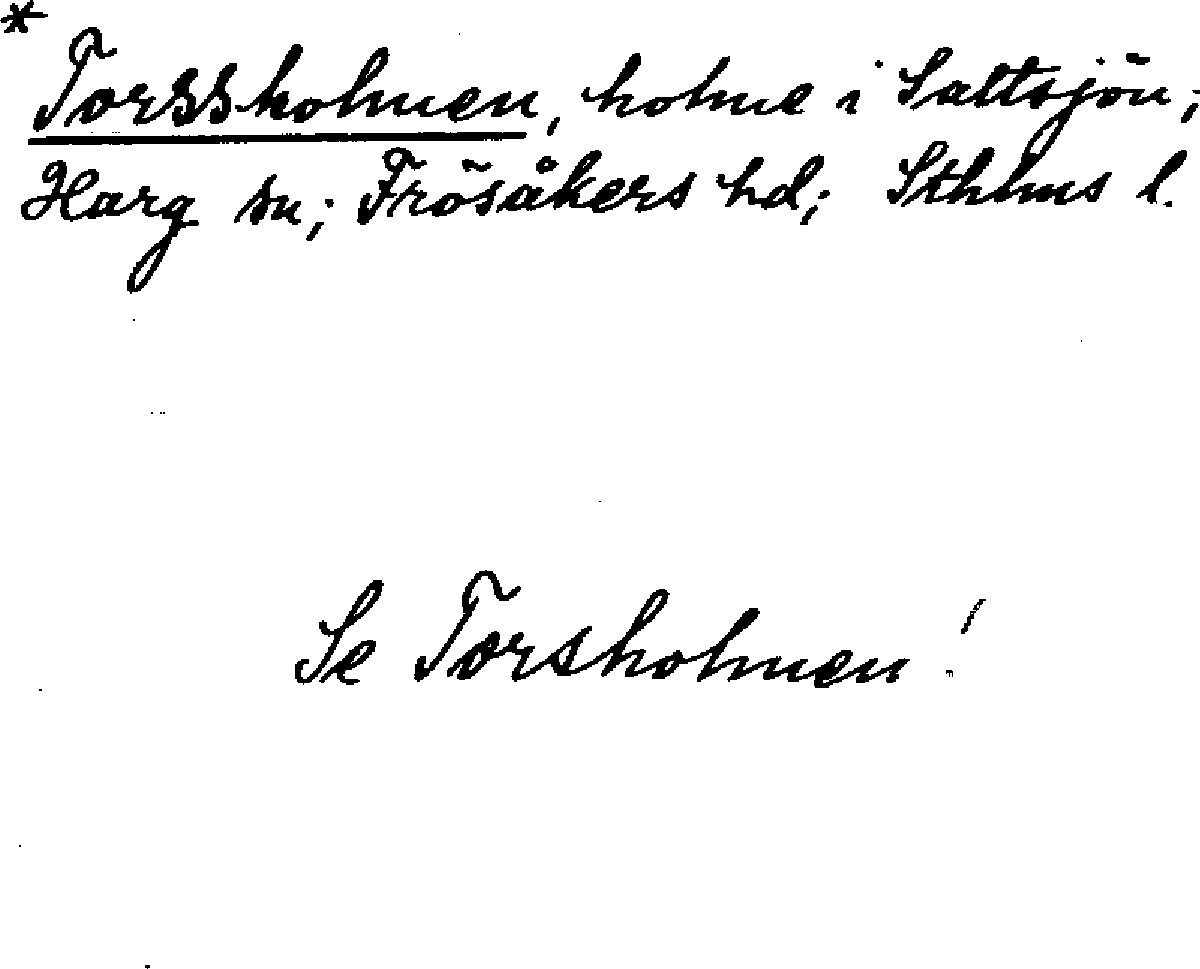 *
Torssholmen, holme i Saltsjön;
Harg sn; Frösåkers hd; Sthlms l.
Se Torsholmen!